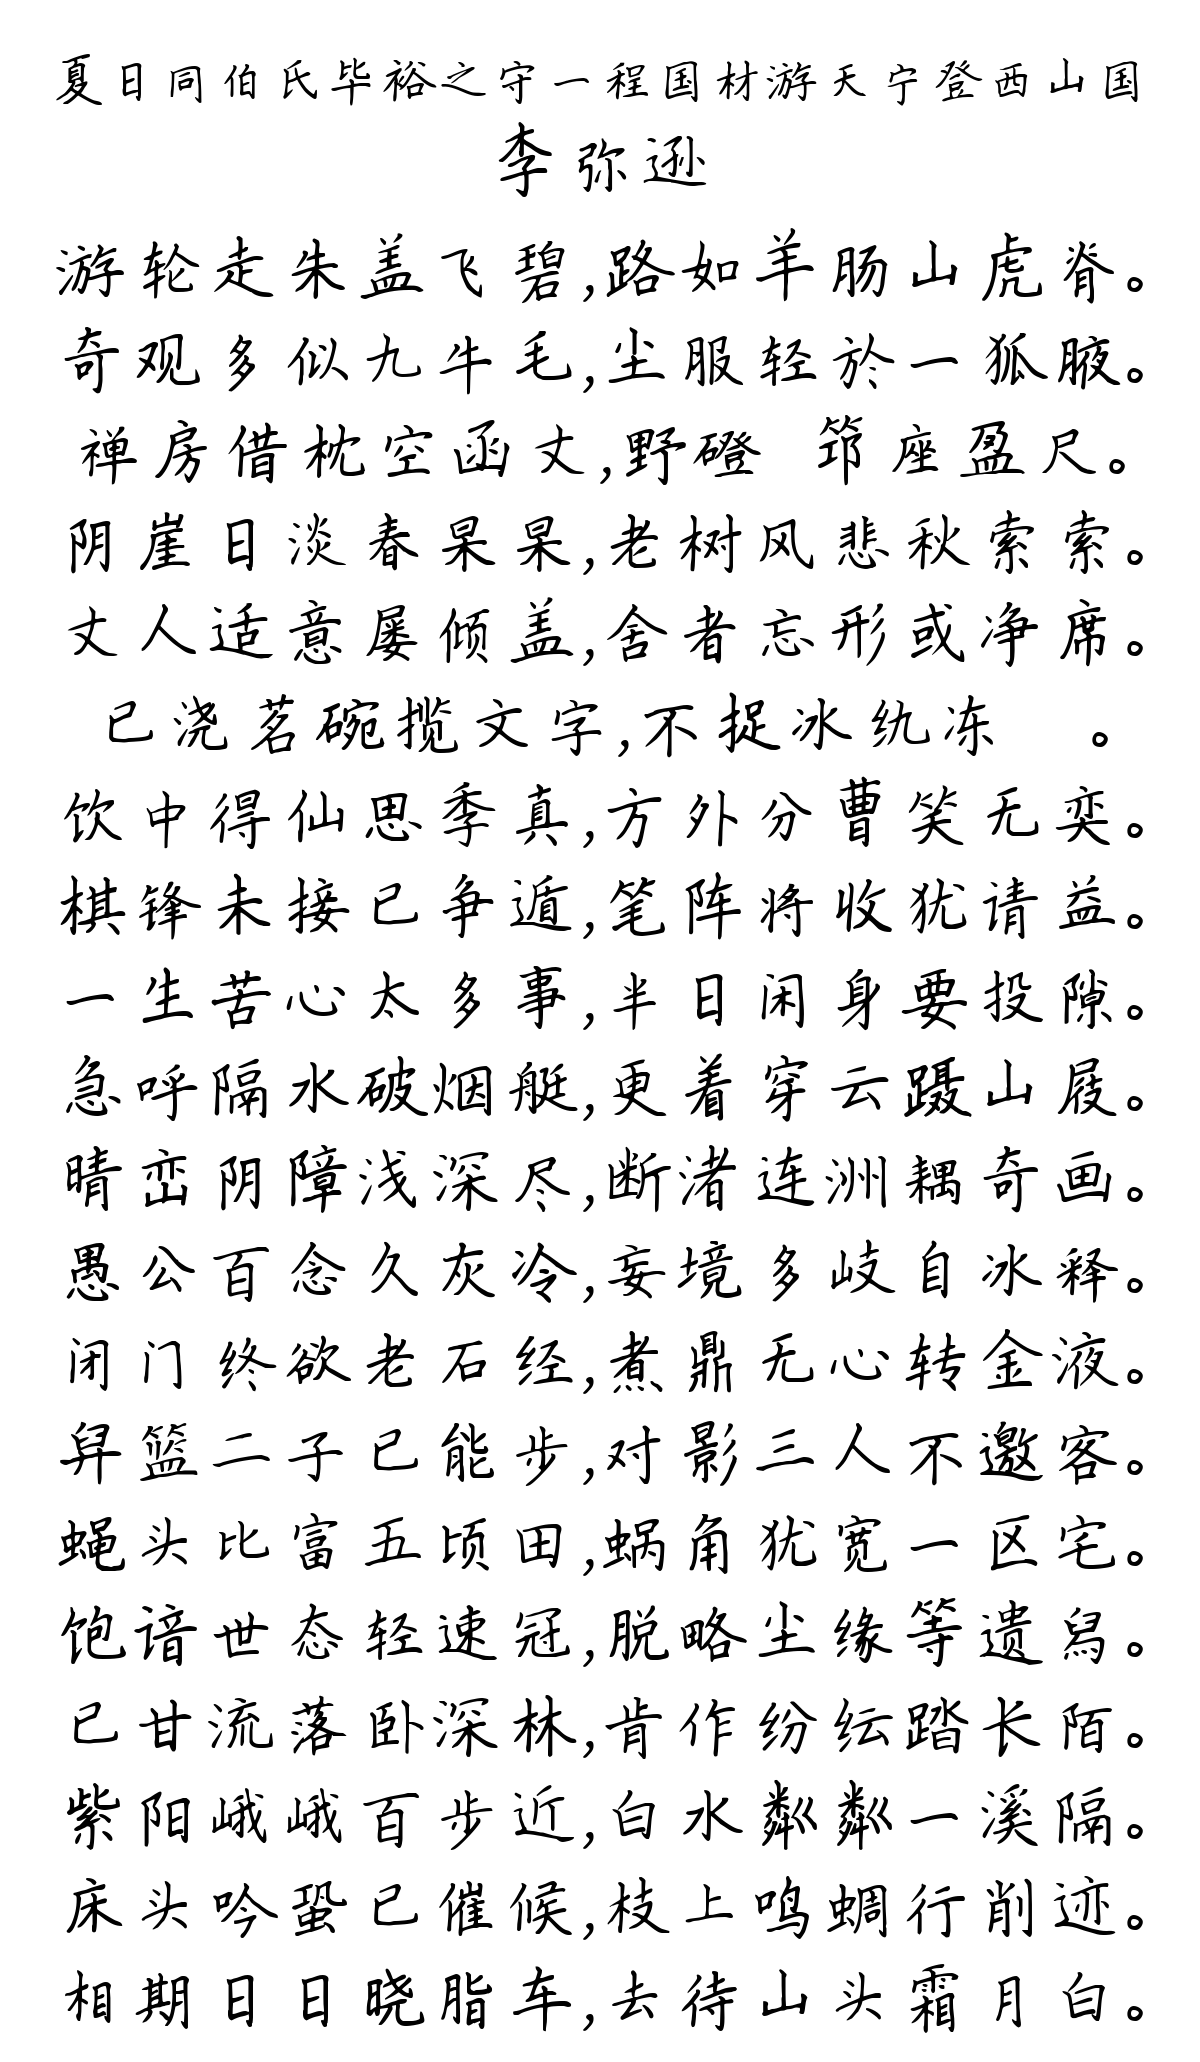 夏日同伯氏毕裕之守一程国材游天宁登西山国
李弥逊
游轮走朱盖飞碧,路如羊肠山虎脊。
奇观多似九牛毛,尘服轻於一狐腋。
禅房借枕空函丈,野磴 筇座盈尺。
阴崖日淡春杲杲,老树风悲秋索索。
丈人适意屡倾盖,舍者忘形或净席。
已浇茗碗揽文字,不捉冰纨冻 。
饮中得仙思季真,方外分曹笑无奕。
棋锋未接已争遁,笔阵将收犹请益。
一生苦心太多事,半日闲身要投隙。
急呼隔水破烟艇,更着穿云蹑山屐。
晴峦阴障浅深尽,断渚连洲耦奇画。
愚公百念久灰冷,妄境多岐自冰释。
闭门终欲老石经,煮鼎无心转金液。
舁篮二子已能步,对影三人不邀客。
蝇头比富五顷田,蜗角犹宽一区宅。
饱谙世态轻速冠,脱略尘缘等遗舄。
已甘流落卧深林,肯作纷纭踏长陌。
紫阳峨峨百步近,白水粼粼一溪隔。
床头吟蛩已催候,枝上鸣蜩行削迹。
相期日日晓脂车,去待山头霜月白。